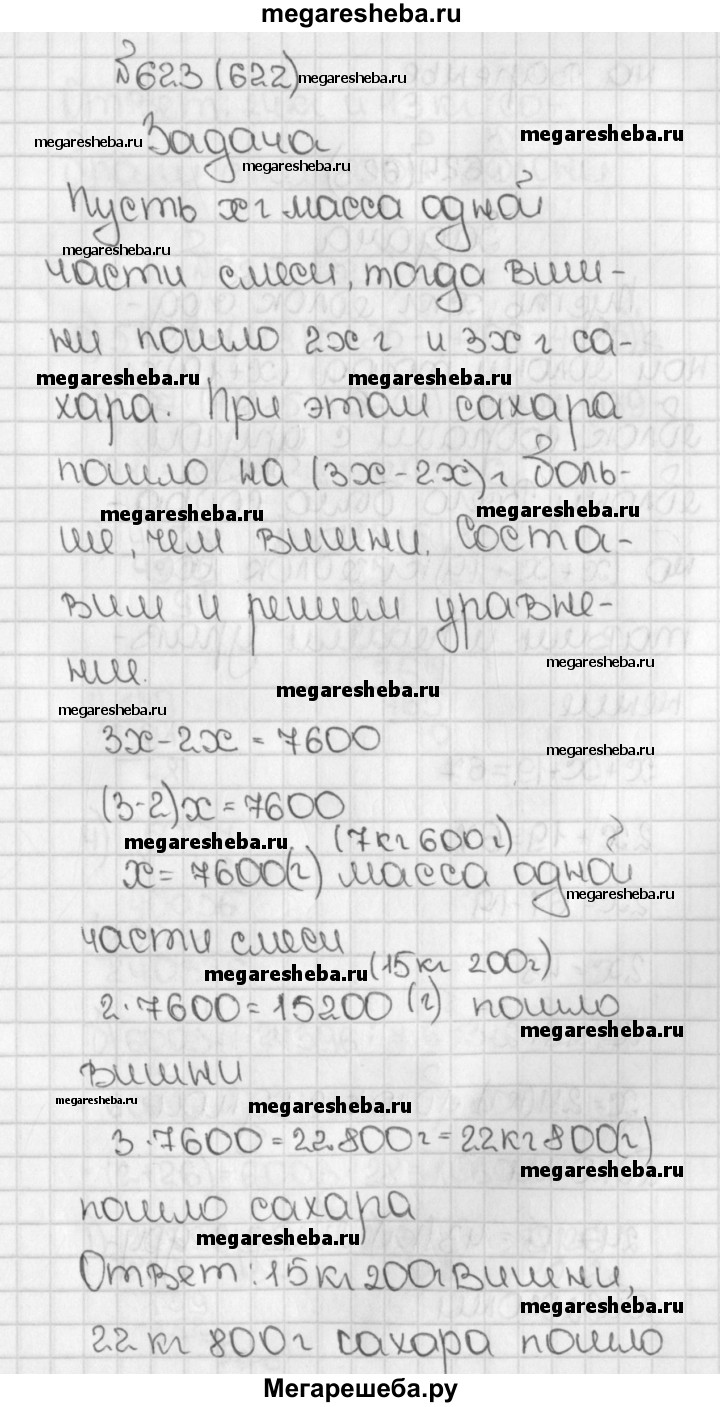 megaresheba.ru
№623 (622) megaresheba.ru
megaresheba.ru Задача megaresheba.ru
megaresheba.ru
Пусть x г масса одной
megaresheba.ru
части смеси, тогда виш-
ни пошло 2x г и 3x г са-
megaresheba.ru megaresheba.ru
хара. При этом сахара
пошло на (3x-2x) г боль-
megaresheba.ru megaresheba.ru
ше, чем вишни. Соста-
вим и решим уравне-
megaresheba.ru
нии.
megaresheba.ru
megaresheba.ru
3x-2x = 7600
megaresheba.ru
(3-2)x = 7600
megaresheba.ru (7кг 600г)
x = 7600(г) масса одной
megaresheba.ru
части смеси
megaresheba.ru (15кг 200г)
2·7600 = 15200 (г) пошло
megaresheba.ru
вишни
megaresheba.ru megaresheba.ru
3·7600 = 22800г = 22кг 800(г)
megaresheba.ru
пошло сахара
megaresheba.ru
Ответ: 15кг 200г вишни,
megaresheba.ru
22 кг 800г сахара пошло
Мегарешеба.ру